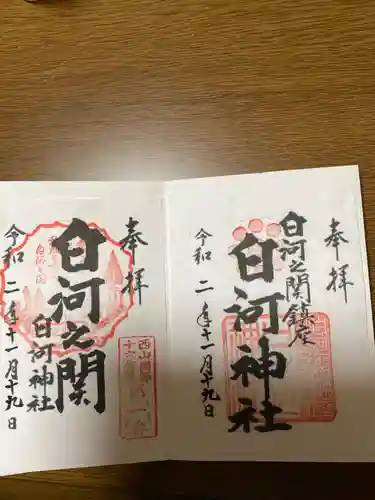 奉拝
白河之関鎮座
白河神社
令和二年十一月十九日
奉拝
白河之関
白河神社
令和二年十一月十九日